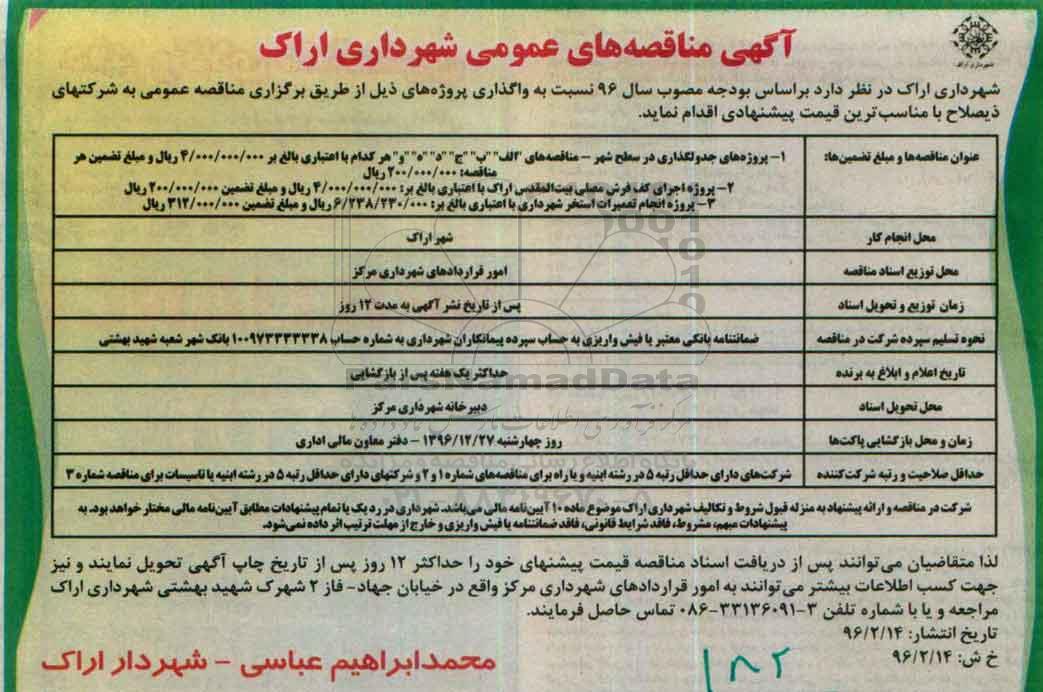 آگهی مناقصه‌های عمومی شهرداری اراک
شهرداری اراک
شهرداری اراک در نظر دارد براساس بودجه مصوب سال ۹۶ نسبت به واگذاری پروژه‌های ذیل از طریق برگزاری مناقصه عمومی به شرکتهای
ذیصلاح با مناسب‌ترین قیمت پیشنهادی اقدام نماید.
عنوان مناقصه‌ها و مبلغ تضمین‌ها:
۱- پروژه‌های جدولگذاری در سطح شهر – مناقصه‌های "الف" "ب" "ج" "د" "ه" "و" هر کدام با اعتباری بالغ بر ۴/۰۰۰/۰۰۰/۰۰۰ ریال و مبلغ تضمین هر
مناقصه: ۲۰۰/۰۰۰/۰۰۰ ریال
۲- پروژه اجرای کف فرش مصلی بیت‌المقدس اراک با اعتباری بالغ بر: ۴/۰۰۰/۰۰۰/۰۰۰ ریال و مبلغ تضمین ۲۰۰/۰۰۰/۰۰۰ ریال
۳- پروژه انجام تعمیرات استخر شهرداری با اعتباری بالغ بر: ۶/۲۳۸/۲۳۰/۰۰۰ ریال و مبلغ تضمین ۳۱۲/۰۰۰/۰۰۰ ریال
محل انجام کار
شهر اراک
محل توزیع اسناد مناقصه
امور قراردادهای شهرداری مرکز
زمان توزیع و تحویل اسناد
پس از تاریخ نشر آگهی به مدت ۱۲ روز
نحوه تسلیم سپرده شرکت در مناقصه
ضمانتنامه بانکی معتبر یا فیش واریزی به حساب سپرده پیمانکاران شهرداری به شماره حساب ۱۰۰۹۷۳۳۳۳۳۸ بانک شهر شعبه شهید بهشتی
تاریخ اعلام و ابلاغ به برنده
حداکثر یک هفته پس از بازگشایی
ParsNamadData
محل تحویل اسناد
دبیرخانه شهرداری مرکز
زمان و محل بازگشایی پاکت‌ها
روز چهارشنبه ۱۳۹۶/۱۲/۲۷ – دفتر معاون مالی اداری
پایگاه اطلاع رسانی مناقصه و مزایده
حداقل صلاحیت و رتبه شرکت‌کننده
شرکت‌های دارای حداقل رتبه ۵ در رشته ابنیه و یا راه برای مناقصه‌های شماره ۱ و ۲ و شرکتهای دارای حداقل رتبه ۵ در رشته ابنیه یا تاسیسات برای مناقصه شماره ۳
۰۲۱-۸۸۳۴۹۶۷۰-۵
شرکت در مناقصه و ارائه پیشنهاد به منزله قبول شروط و تکالیف شهرداری اراک موضوع ماده ۱۰ آیین‌نامه مالی می‌باشد. شهرداری در رد یک یا تمام پیشنهادات مطابق آیین‌نامه مالی مختار خواهد بود. به
پیشنهادات مبهم، مشروط، فاقد شرایط قانونی، فاقد ضمانتنامه یا فیش واریزی و خارج از مهلت ترتیب اثر داده نمی‌شود.
لذا متقاضیان می‌توانند پس از دریافت اسناد مناقصه قیمت پیشنهای خود را حداکثر ۱۲ روز پس از تاریخ چاپ آگهی تحویل نمایند و نیز
جهت کسب اطلاعات بیشتر می‌توانند به امور قراردادهای شهرداری مرکز واقع در خیابان جهاد- فاز ۲ شهرک شهید بهشتی شهرداری اراک
مراجعه و یا با شماره تلفن ۳-۳۳۱۳۶۰۹۱-۰۸۶ تماس حاصل فرمایند.
تاریخ انتشار: ۹۶/۲/۱۴
خ ش: ۹۶/۲/۱۴
محمدابراهیم عباسی - شهردار اراک
۱۸۲